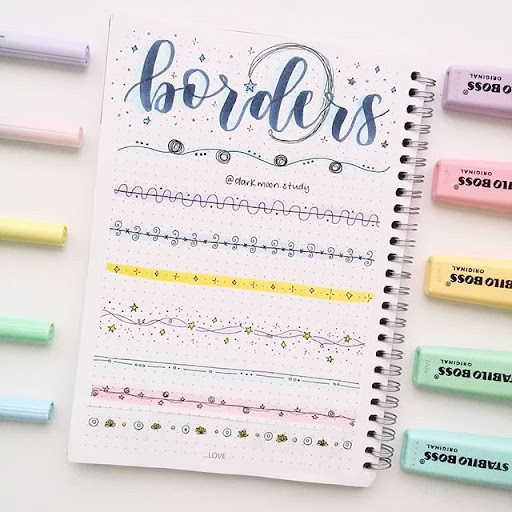 borders
@darkmoon.study
...LOVE
STABILO BOSS
ORIGINAL
STABILO BOSS
ORIGINAL
STABILO BOSS
ORIGINAL
STABILO BOSS
ORIGINAL
STABILO BOSS
ORIGINAL